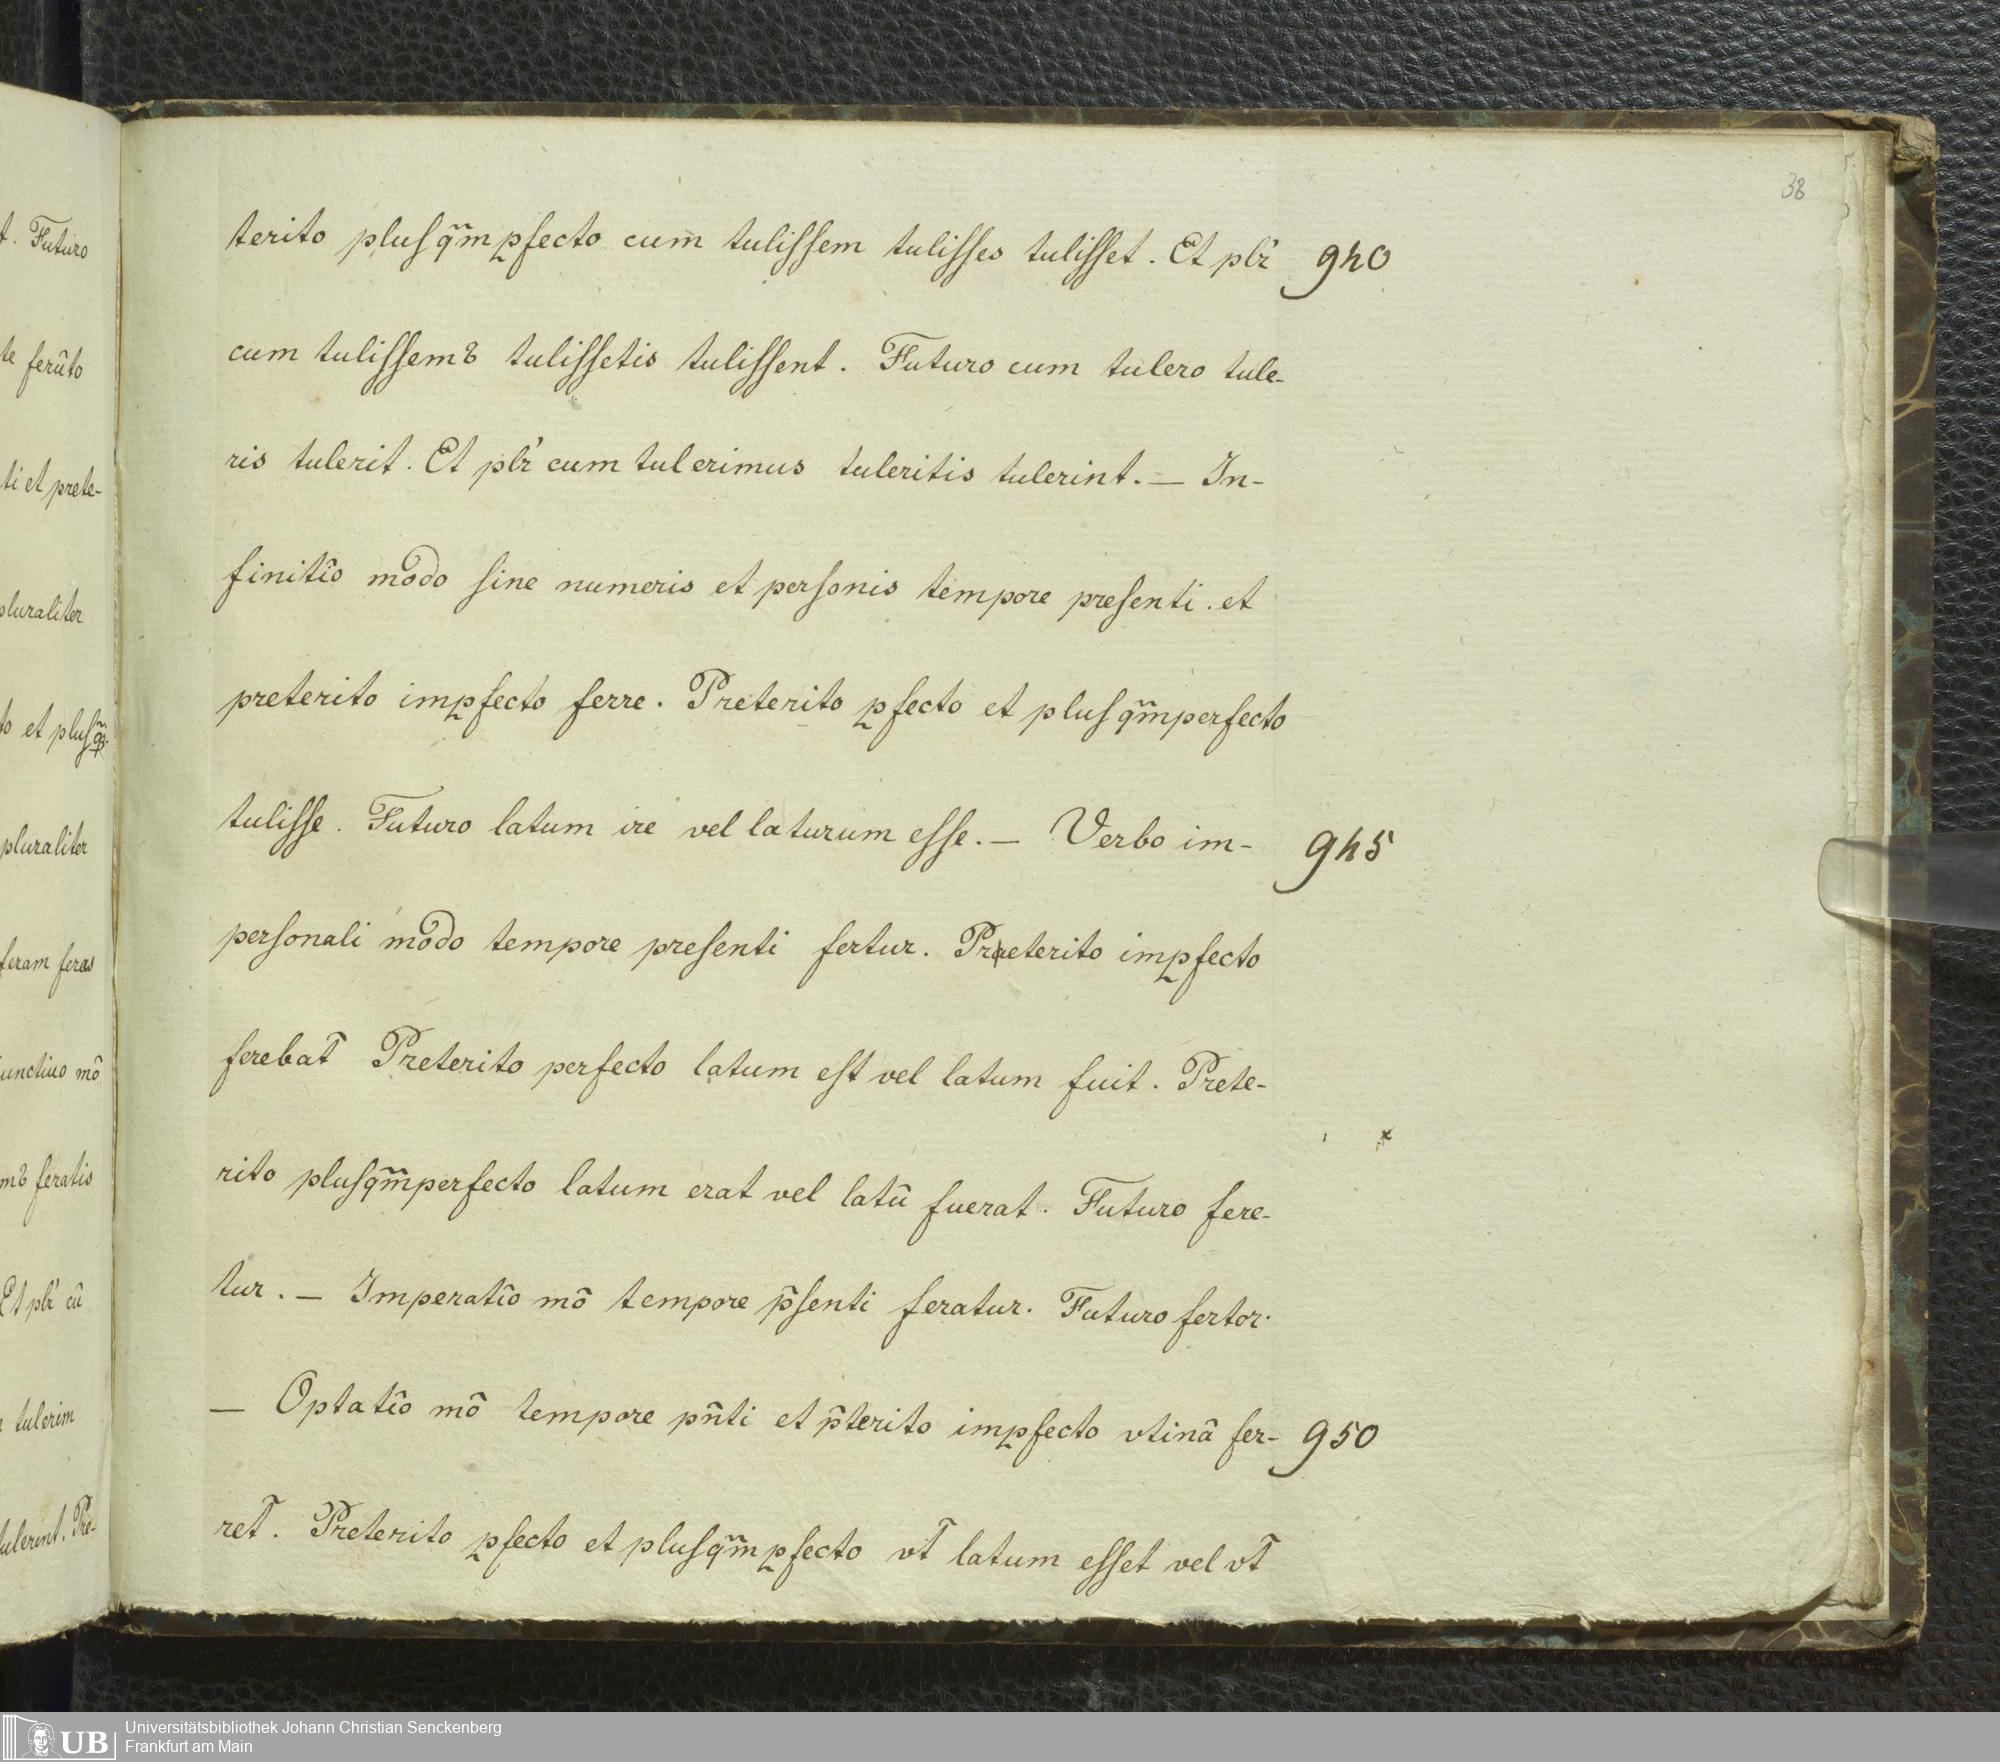 t. Futuro
te ferūto
ti et prete-
pluraliter
to et plusq̃ꝑ.
pluraliter
feram feras
iunctiuo mō
mꝰ feratis
Et plr̄ cū
tulerim
tulerint. Pre-
38
terito plusqm̃ ꝑfecto cum tulissem tulisses tulisset. Et plr̄ 940
cum tulissemꝰ tulissetis tulissent. Futuro cum tulero tule-
ris tulerit. Et plr̄ cum tulerimus tuleritis tulerint. — In-
finitĩo modo sine numeris et personis tempore presenti. et
preterito imꝑfecto ferre. Preterito ꝑfecto et plusqm̃perfecto
tulisse. Futuro latum ire vel laturum esse. — Verbo im- 945
personali modo tempore presenti fertur. Preterito imꝑfecto
ferebat̃ Preterito perfecto latum est vel latum fuit. Prete-
rito plusqm̃perfecto latum erat vel latū fuerat. Futuro fere-
tur. — Imperatĩo mō tempore p̄senti feratur. Futuro fertor.
— Optatĩo mō tempore pñti et p̄terito imꝑfecto vtinā fer- 950
ret̃. Preterito ꝑfecto et plusqm̃ ꝑfecto vt̃ latum esset vel vt̃
UB Universitätsbibliothek Johann Christian Senckenberg
Frankfurt am Main